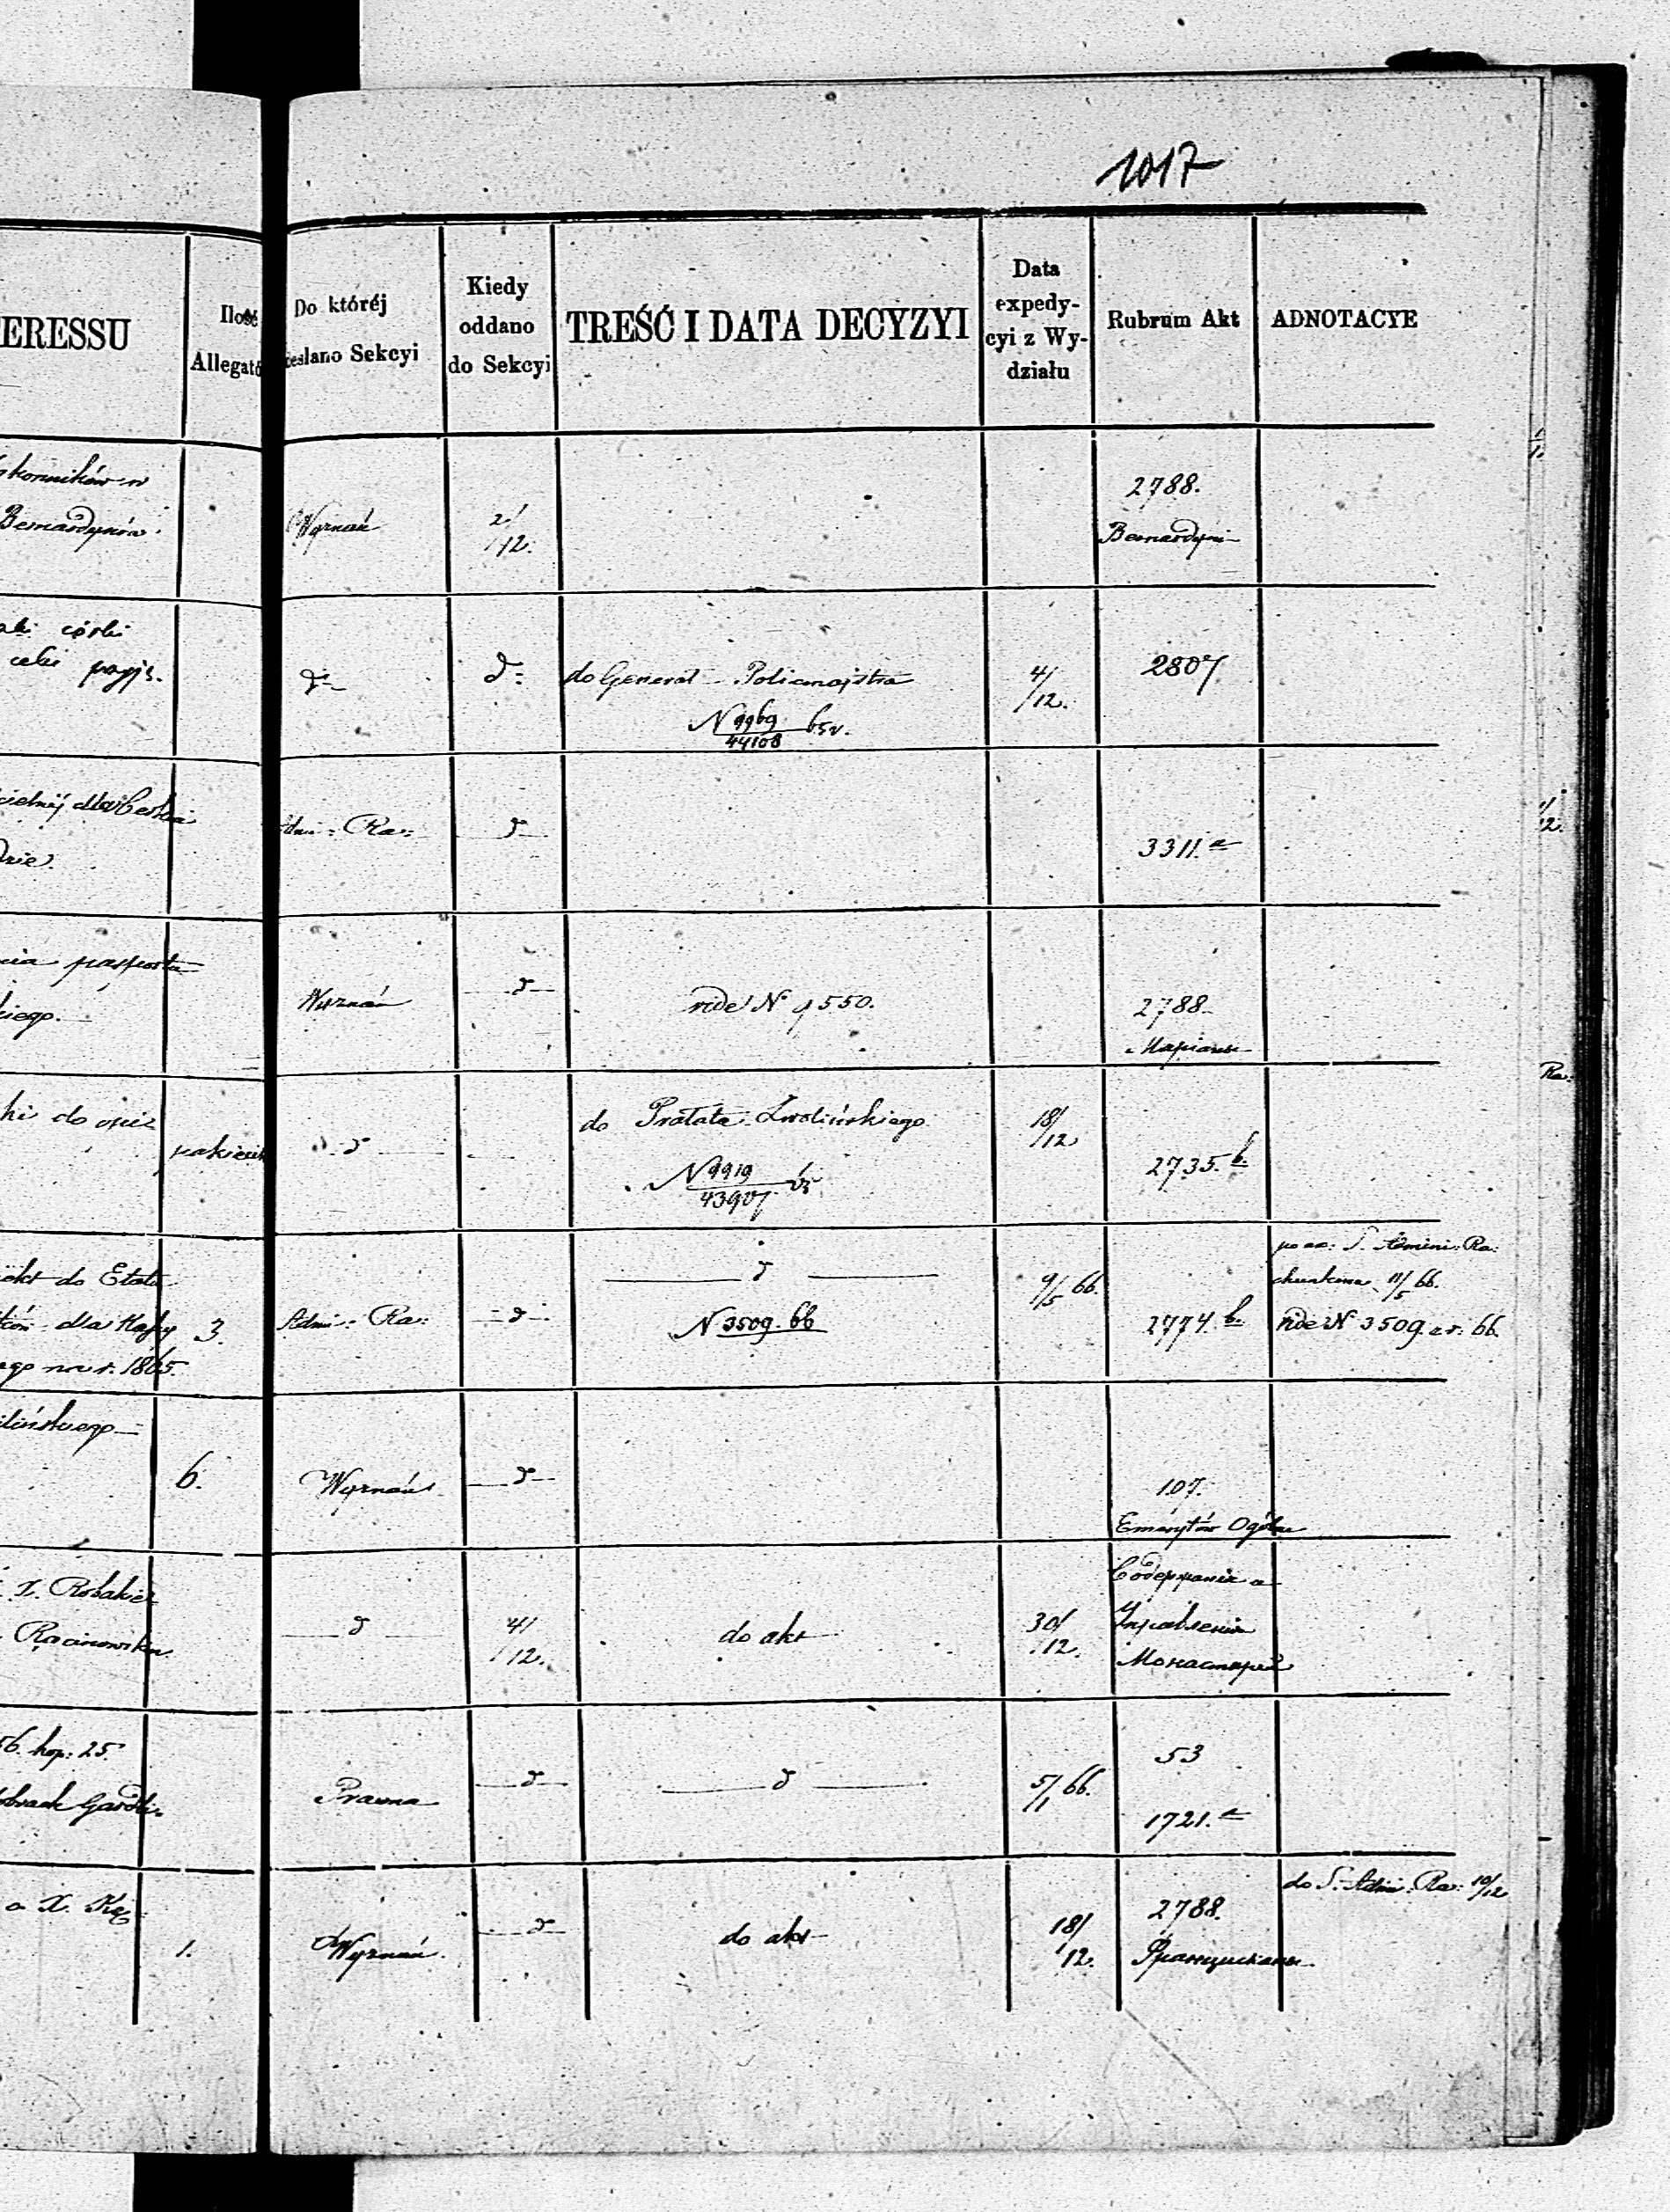 1017
ERESSU
Ilość
Allegató
Do któréj
esłano Sekcyi
Kiedy
oddano
do Sekcyi
TREŚĆ I DATA DECYZYI
Data
expedy-
cyi z Wy-
działu
Rubrum Akt
ADNOTACYE
konników w
Bernardynów
Wyznań
2/12.
2788.
Bernardyni
córki
celu
d=
d=
do General-Policmajstra
N 9969
44108
4/12.
2807
Admi: Ra:
d
3311.a
paszportu
kiego.
Wyznań
d
vide N 9550.
2788
Маріане
ki do
pakiecik
d
do Prałata Zwolińskiego
N 9919
43907
18/12
2735.b.
do Etatu
dla Kassy
ego na r. 1865.
3.
Admi: Ra:
d
d
N 3509.66
9/5 66.
2774.b.
S. Admini: Ra:
chunkowa 11/5 66.
vide N 3509. z r. 66.
lińskiego
6.
Wyznań
d
107.
Emerytów Ogólne
X. Robakie
Racinowsken
d
4/12.
do akt
30/12.
Содержанія и
Управленія
Монастырей
56. kop: 25.
Prawna
d
d
5/1 66.
53
1721.a
a X. Kę
1.
Wyznań.
d
do akt
18/12.
2788.
Францискане
do S. Admi: Ra: 10/12
Ra: